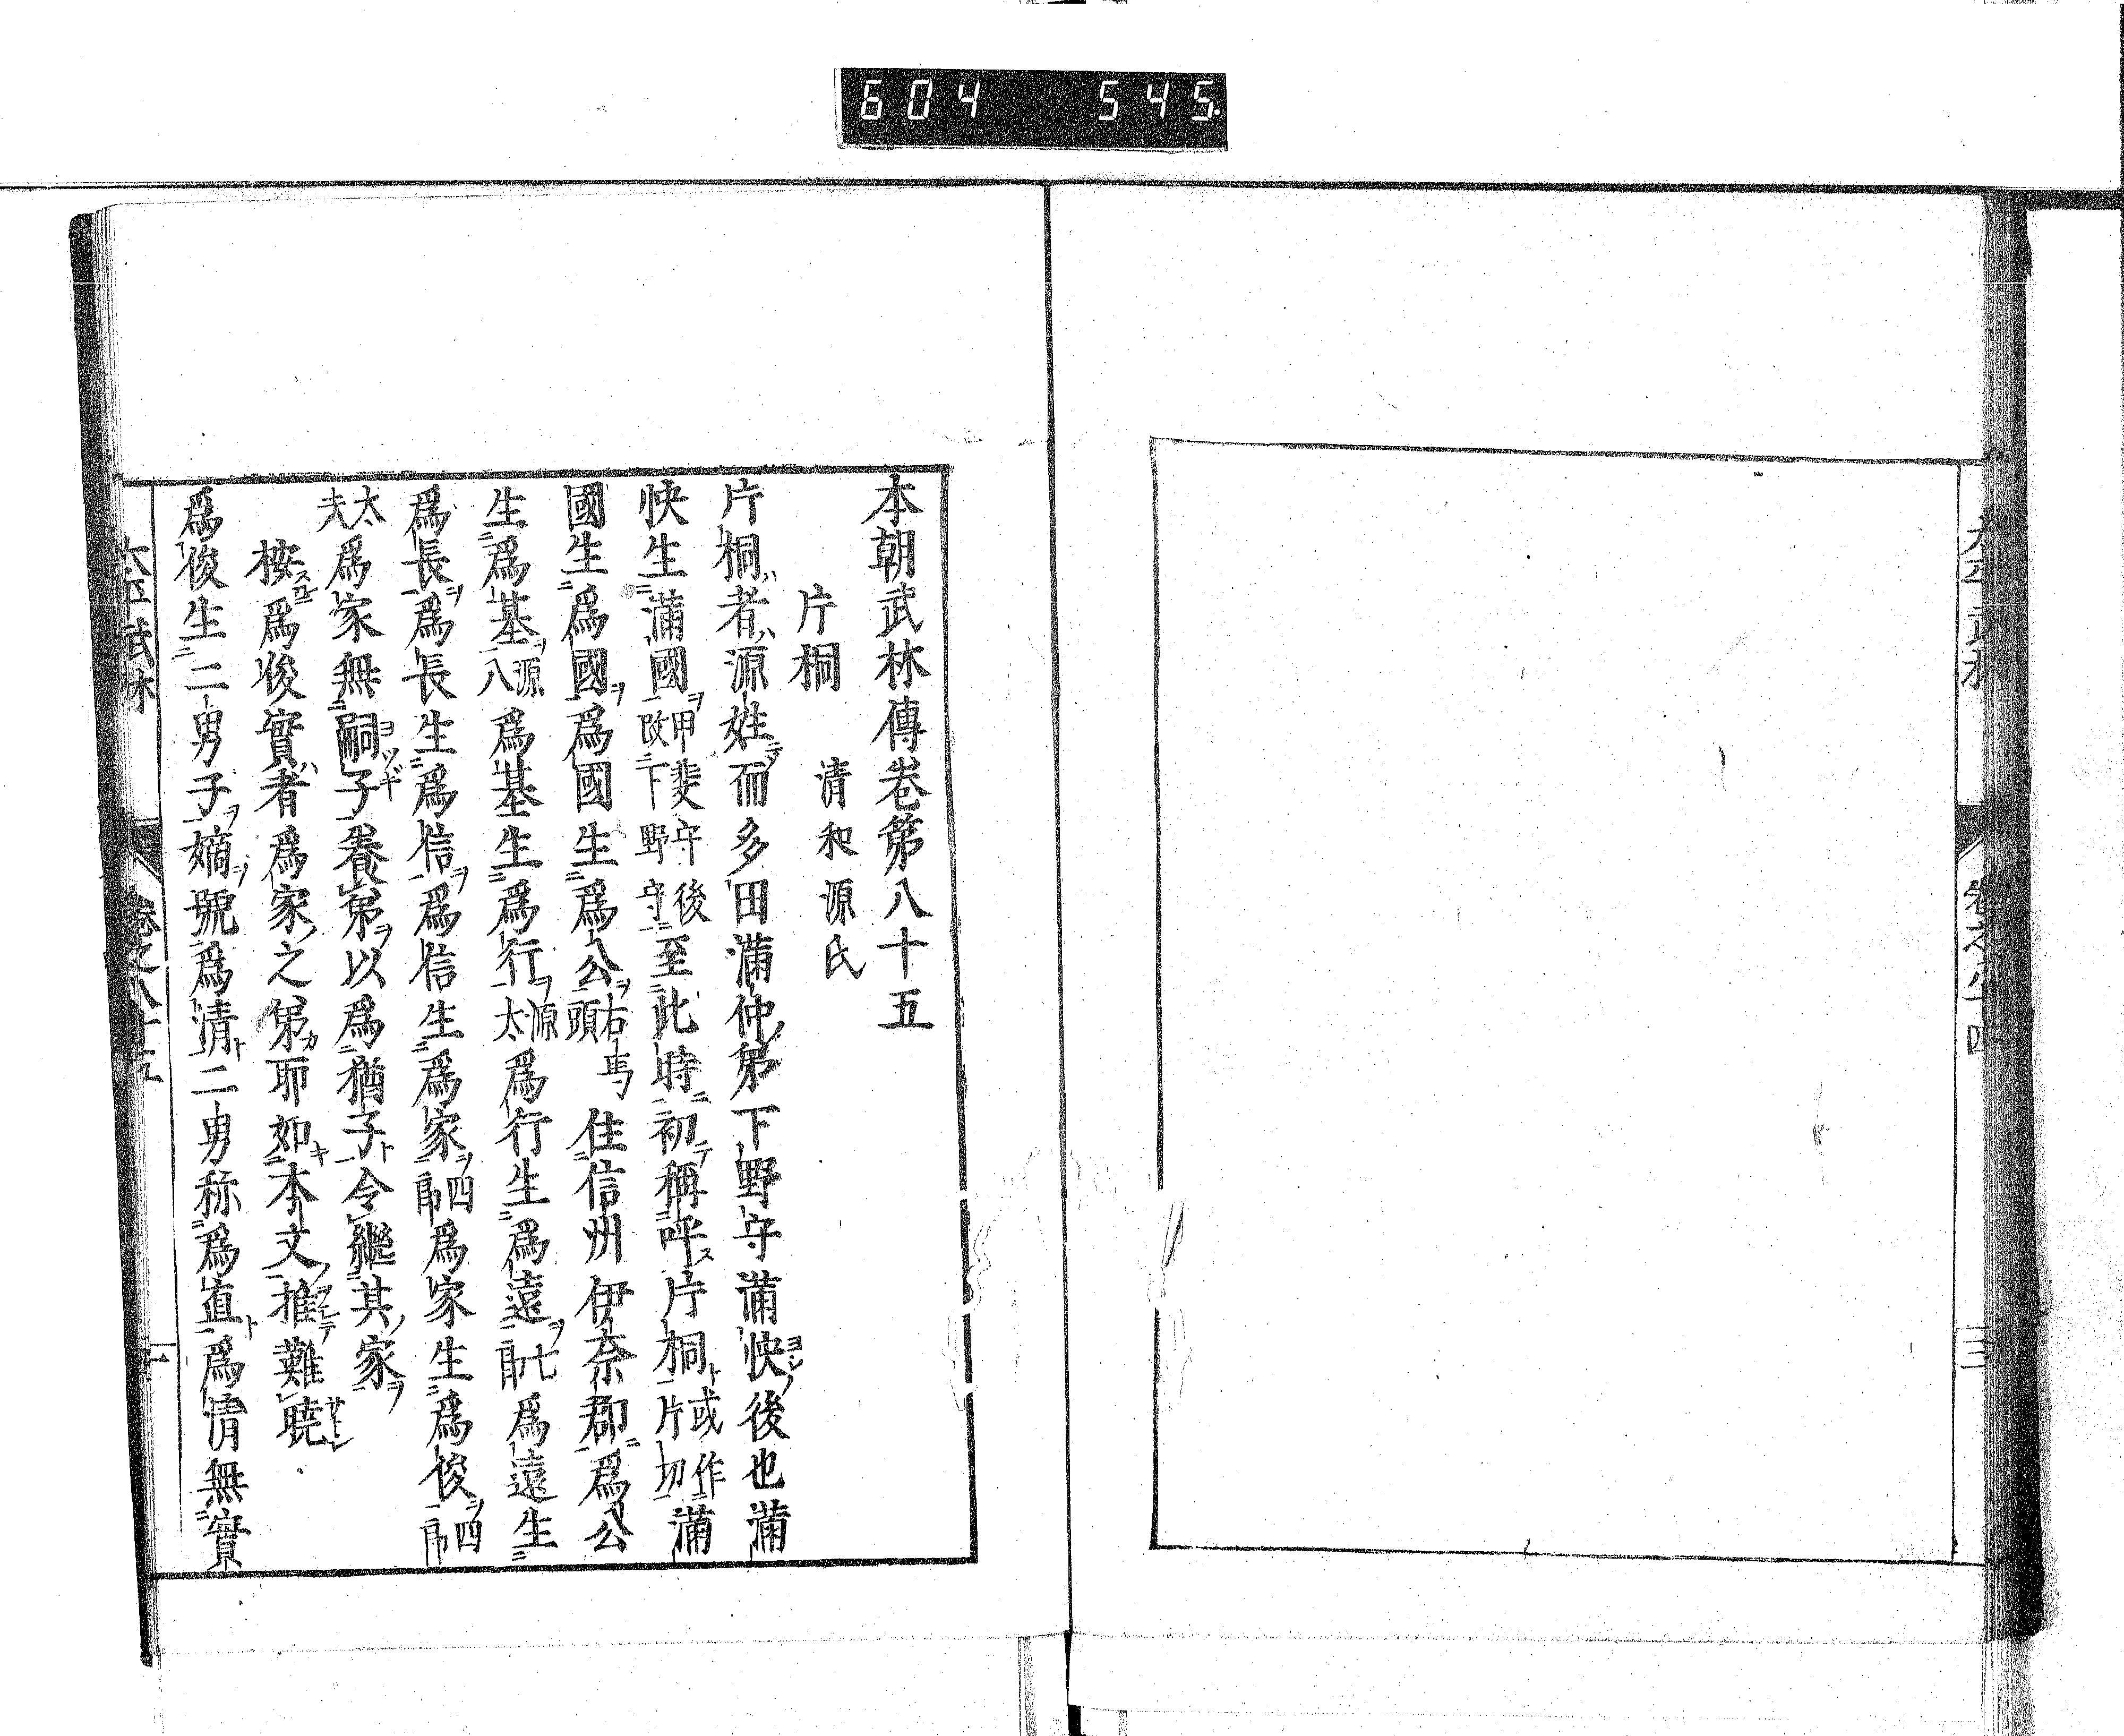 604 545
本朝武林傳卷第八十五
片桐 清和源氏
片桐者源姓而多田満仲弟下野守満快後也満
快生満國甲斐守後改下野守至此時初稱呼片桐或作片切満
國生爲國爲國生爲公右馬頭住信州伊奈郡爲公
生爲基源八爲基生爲行源太爲行生爲遠七郎爲遠生
爲長爲長生爲信爲信生爲家四郎爲家生爲俊四郎
太夫爲家無嗣子養弟以爲猶子令繼其家
桉爲俊實者爲家之弟耶如本文推難曉
爲俊生二男子嫡號爲清二男称爲直爲清無實